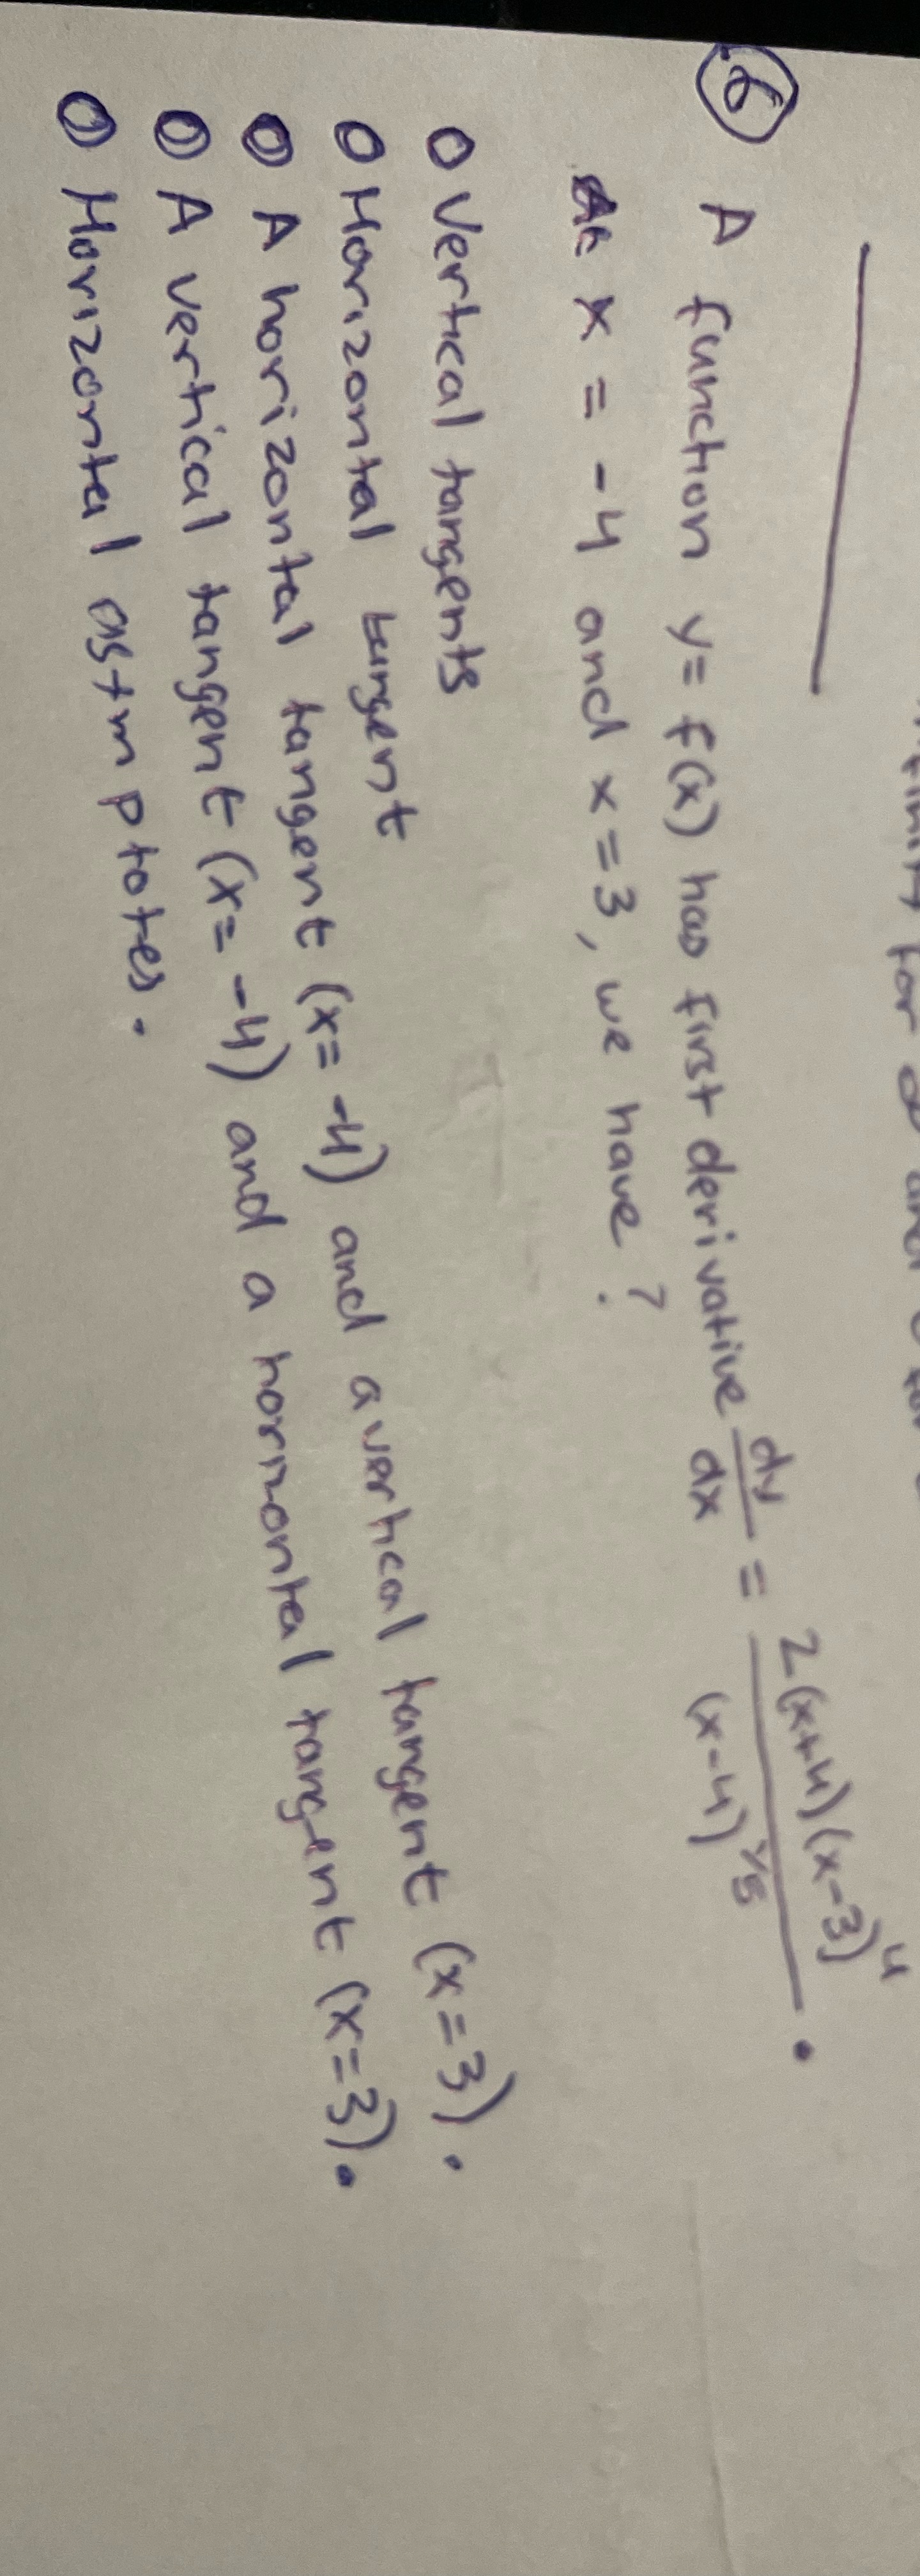 6 A function y = f(x) has first derivative dy/dx = 2(x+4)(x-3)^4 / (x-4)^1/5 .
At x = -4 and x = 3, we have ?
O Vertical tangents
O Horizontal tangent
O A horizontal tangent (x = -4) and a vertical tangent (x = 3).
O A vertical tangent (x = -4) and a horizontal tangent (x = 3).
O Horizontal astmptotes.